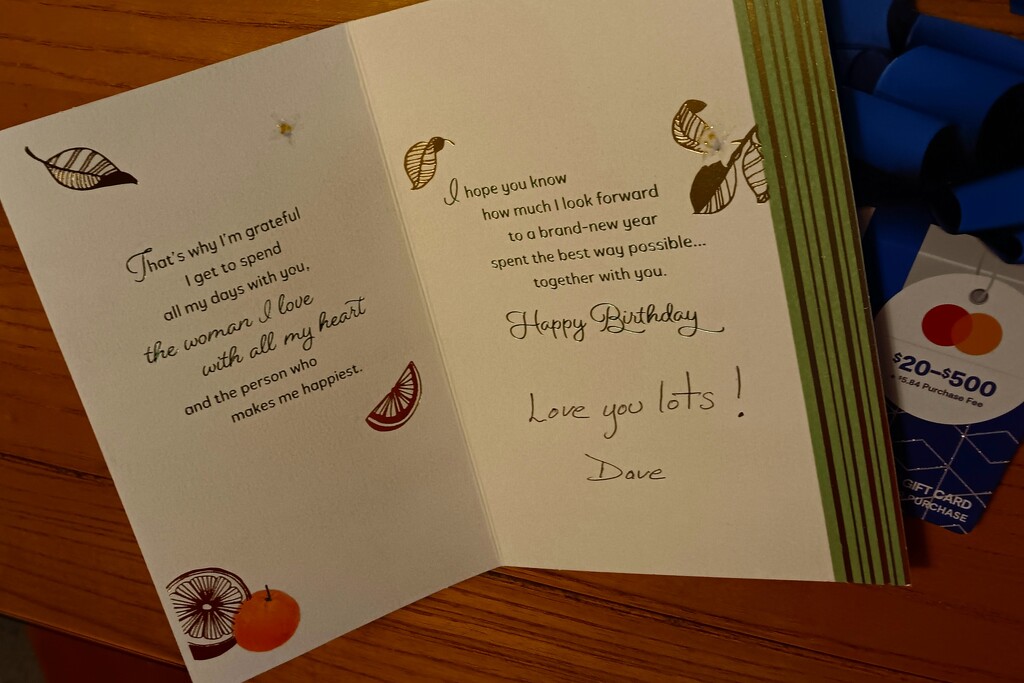 That's why I'm grateful
I get to spend
all my days with you,
the woman I love
with all my heart
and the person who
makes me happiest.
I hope you know
how much I look forward
to a brand-new year
spent the best way possible...
together with you.
Happy Birthday
Love you lots!
Dave
$20–$500
+ $5.84 Purchase Fee
GIFT CARD
PURCHASE